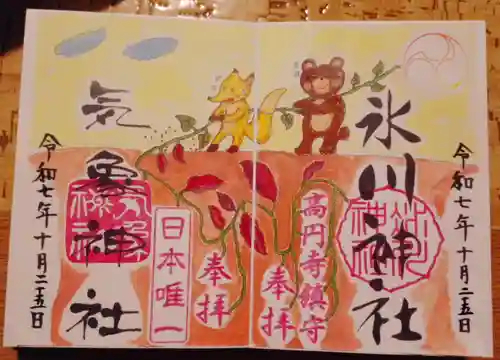 令和七年十月二五日
氷川神社
高円寺鎮守
奉拝
奉拝
日本唯一
気象神社
令和七年十月二五日